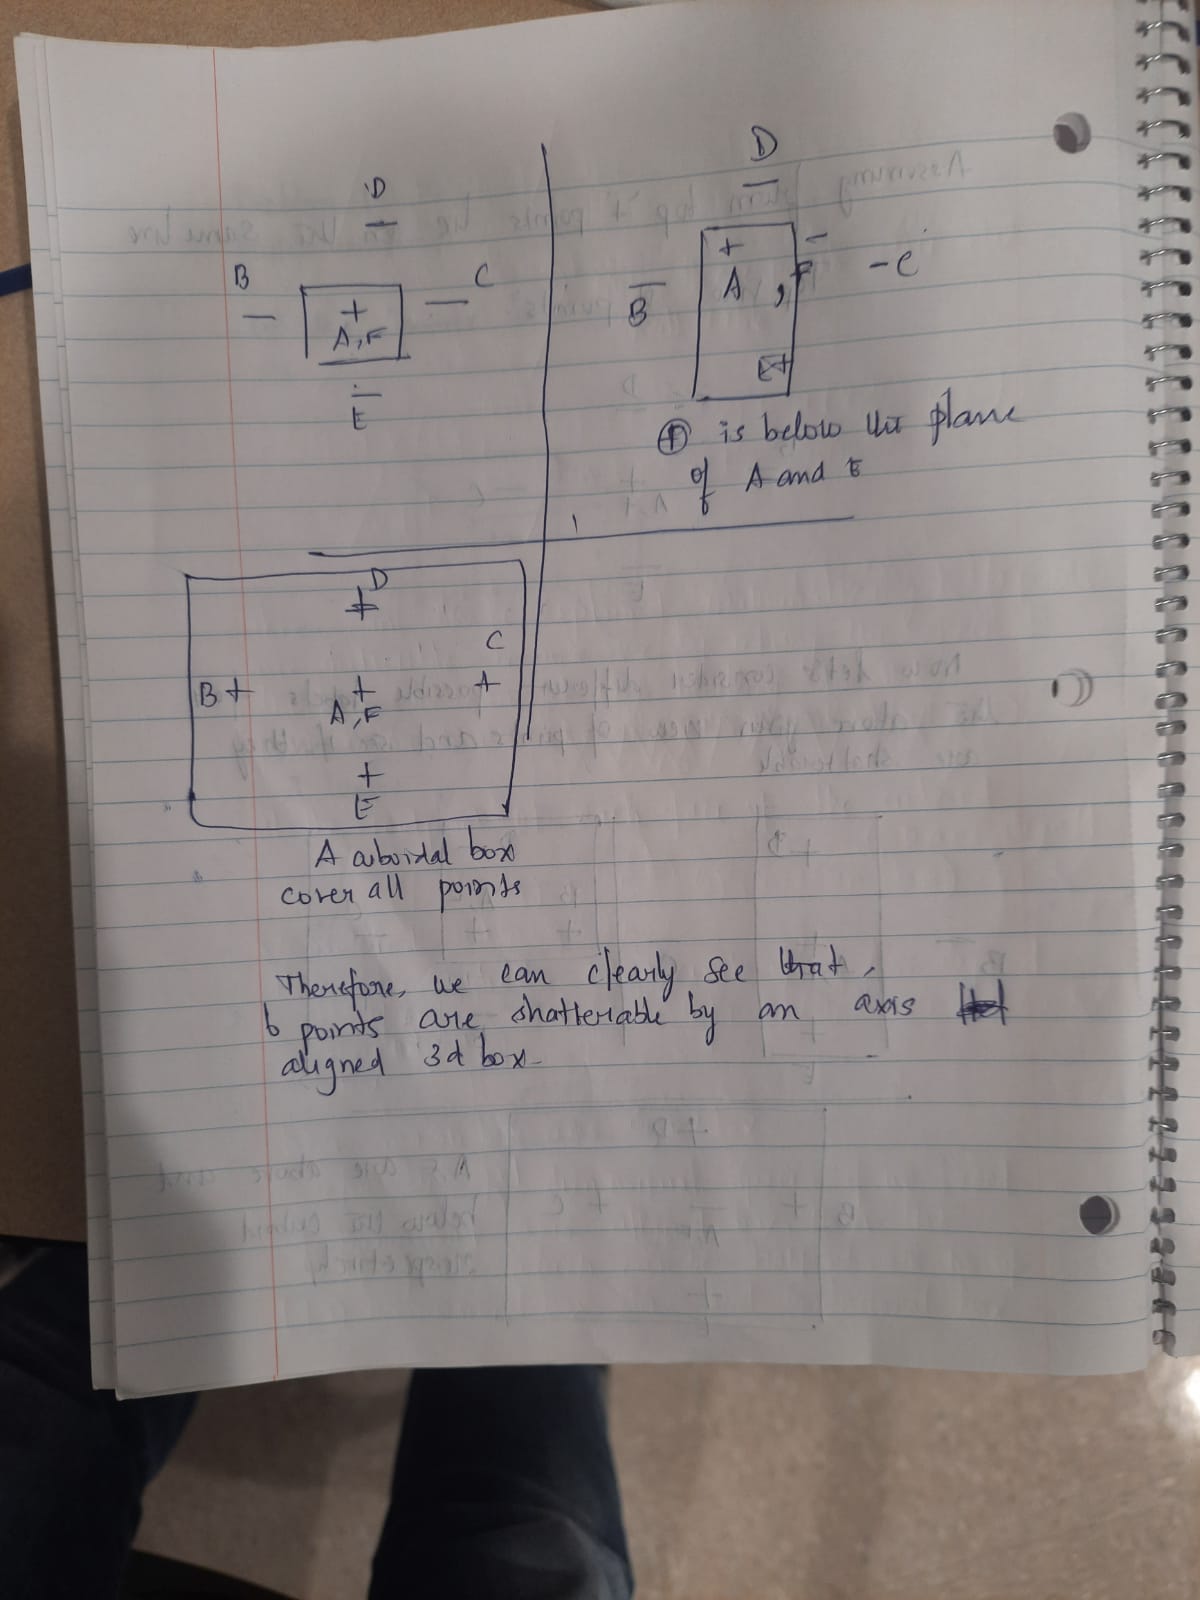 D
—
B
C
—
+
—
A, F
—
E
D
—
+
—
-C
—
A , F
B
E+
(F) is below the plane
of A and E
D
+
C
B +
+
+
A, F
+
E
A cuboidal box
cover all points
Therefore, we can clearly see that,
6 points are shatterable by an axis
aligned 3d box.